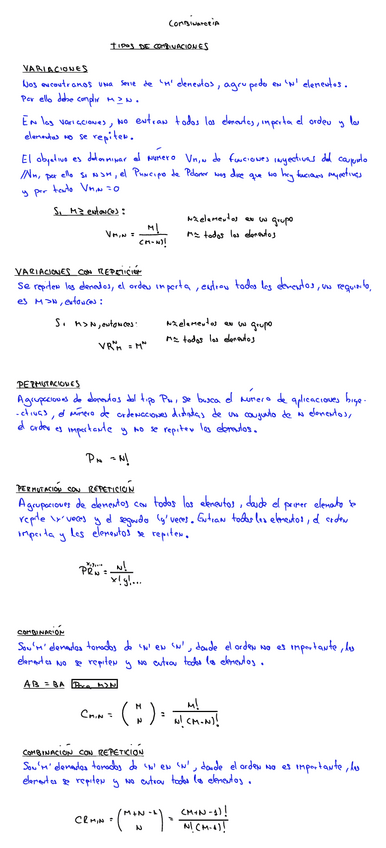 COMBINATORIA
TIPOS DE COMBINACIONES
VARIACIONES
Nos encontramos una serie de 'M' elementos, agrupado en 'N' elementos.
Por ello debe cumplir M ≥ N.
En las variaciones, no entran todos los elementos, importa el orden y los
elementos no se repiten.
El objetivo es determinar el número Vm,n de funciones inyectivas del conjunto
si N>M, el Principio de nos dice que no hay funciones inyectivas
y por tanto Vm,n = 0
Si M≥ entonces:
N≥ elementos en un grupo
VM,N = M! / (M-N)!
M≥ todos los elementos
VARIACIONES CON REPETICIÓN
Se repiten los elementos, el orden importa, entran todos los elementos, un requisito,
es M>N, entonces:
Si M>N, entonces:
N≥ elementos en un grupo
VR^N_M = M^N
M≥ todos los elementos
PERMUTACIONES
Agrupaciones de elementos del tipo Pn, se busca el número de aplicaciones biye-
-ctivas, el número de ordenaciones distintas de un conjunto de N elementos,
el orden es importante y no se repiten los elementos.
PN = N!
PERMUTACIÓN CON REPETICIÓN
Agrupaciones de elementos con todos los elementos, donde el primer elemento se
repite 'x' veces y el segundo 'y' veces. Entran todos los elementos, el orden
importa y los elementos se repiten.
PR^x,y,..._N = N! / x!y!...
COMBINACIÓN
Son 'M' elementos tomados de 'N' en 'N', donde el orden no es importante, los
elementos no se repiten y no entran todos los elementos.
AB = BA Para M>N
CM,N = (M N) = M! / N!(M-N)!
COMBINACIÓN CON REPETICIÓN
Son 'M' elementos tomados de 'N' en 'N', donde el orden no es importante, los
elementos se repiten y no entran todos los elementos.
CRM,N = (M+N-1 N) = (M+N-1)! / N!(M-1)!